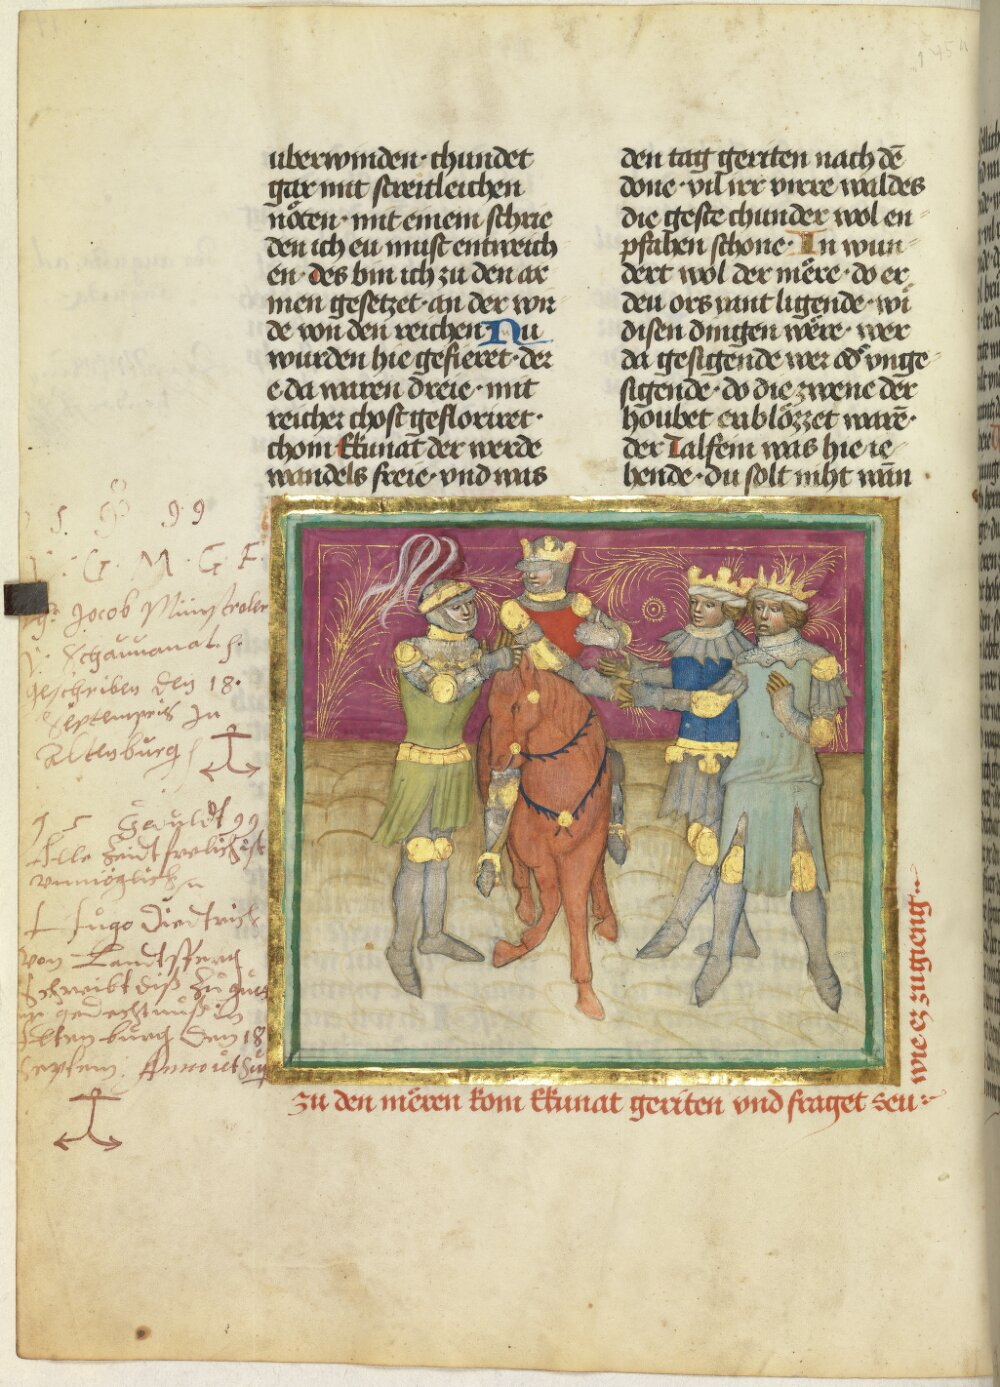 uberwinden · chundet
gar mit streitleichen
nöten · mit einem schrie
den ich eu must entweich
en · des bin ich zu den ar
men gesetzet · an der wir
de von den reichen · Nu
wurden hie gefieret · der
e da waren dreie · mit
reicher chost gefloriret ·
chom Ekunat der werde
wandels freie · vnd was
den tag geriten nach dē
done · vil irr virre waldes
die geste chunder wol en
pfahen schone · In wun
dert wol der mëre · do er
deu ors vant ligende · wi
disen dingen wëre · wer
da gesigende wer od vnge
sigende · do die zwene der
houbet enblözzet warē ·
der Talfein was hie ie
hende · du solt niht wān
99
G · M · G · F ·
Jocob
geschriben den 18 ·
Septempris In
Altenburg
99
Alle Zeidt frolich ist
vnmöglich
Hugo Diedtrich
von
Schreibt diß Zu
gedechtnuß In
Altenburg Den 18
Septem :
zu den mëren kom Ekunat geriten vnd fraget seu
wie · ez zugieng